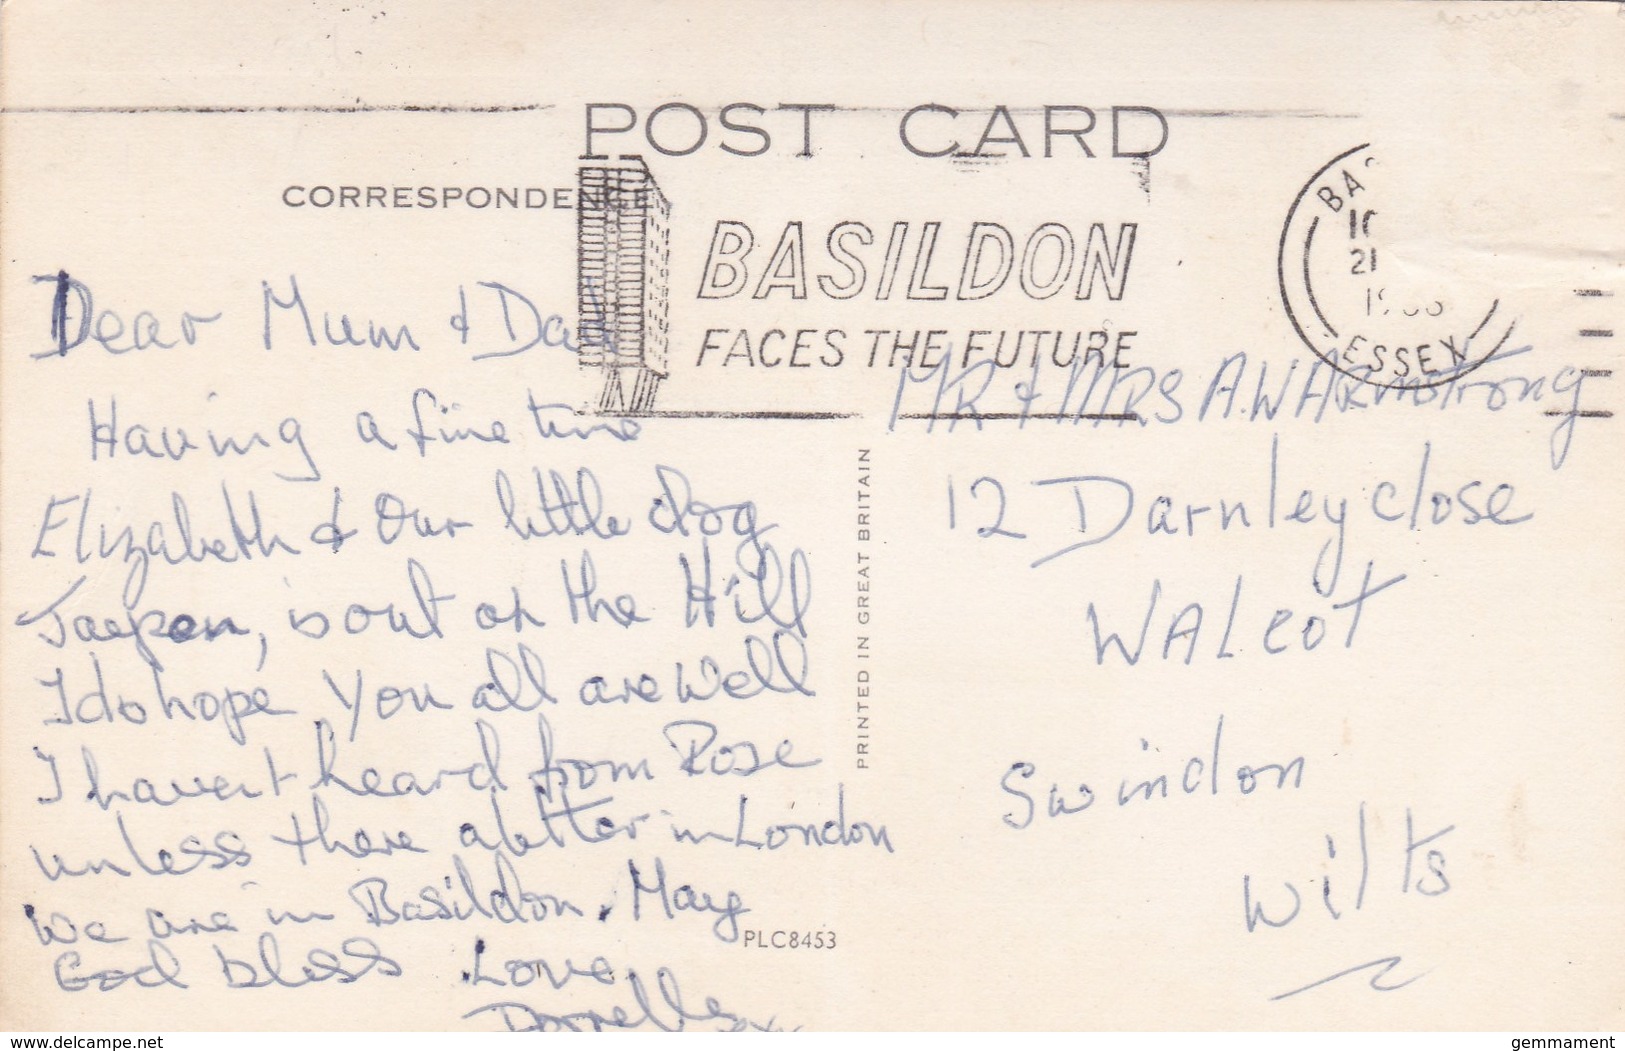 POST CARD
CORRESPONDENCE
BASILDON
FACES THE FUTURE
BAS
ESSEX
Dear Mum & Dad
Having a fine time
Elizabeth & Our little dog
is out on the Hill
I do hope You all are well
I havent heard from Rose
unless there a letter in London
We are in Basildon. May
God bless Love
xx
PRINTED IN GREAT BRITAIN
PLC8453
MR & MRS A.W ARmstrong
12 Darnley close
WALcOT
Swindon
Wilts
www.delcampe.net
gemmament